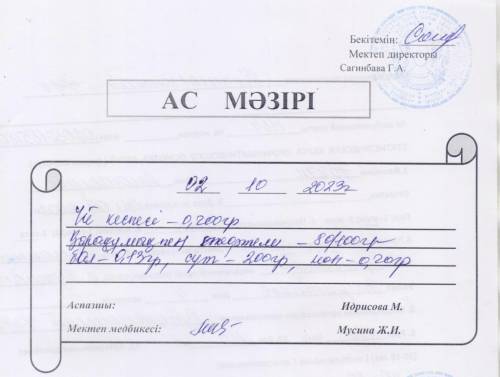 Бекітемін:
Мектеп директоры
Сагинбава Г.А.
АС МӘЗІРІ
02 10 2023г
Үй кеспесі – 0,200гр
– 80/100гр
бал – 0,13гр, сүт – 200гр, нан – 0,20гр
Аспазшы: Идрисова М.
Мектеп медбикесі: Мусина Ж.И.